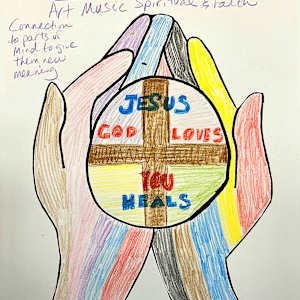 Art Music Spiritual & Faith
Connection
to parts of
Mind to give
them new
meaning
JESUS
GOD LOVES
YOU
HEALS